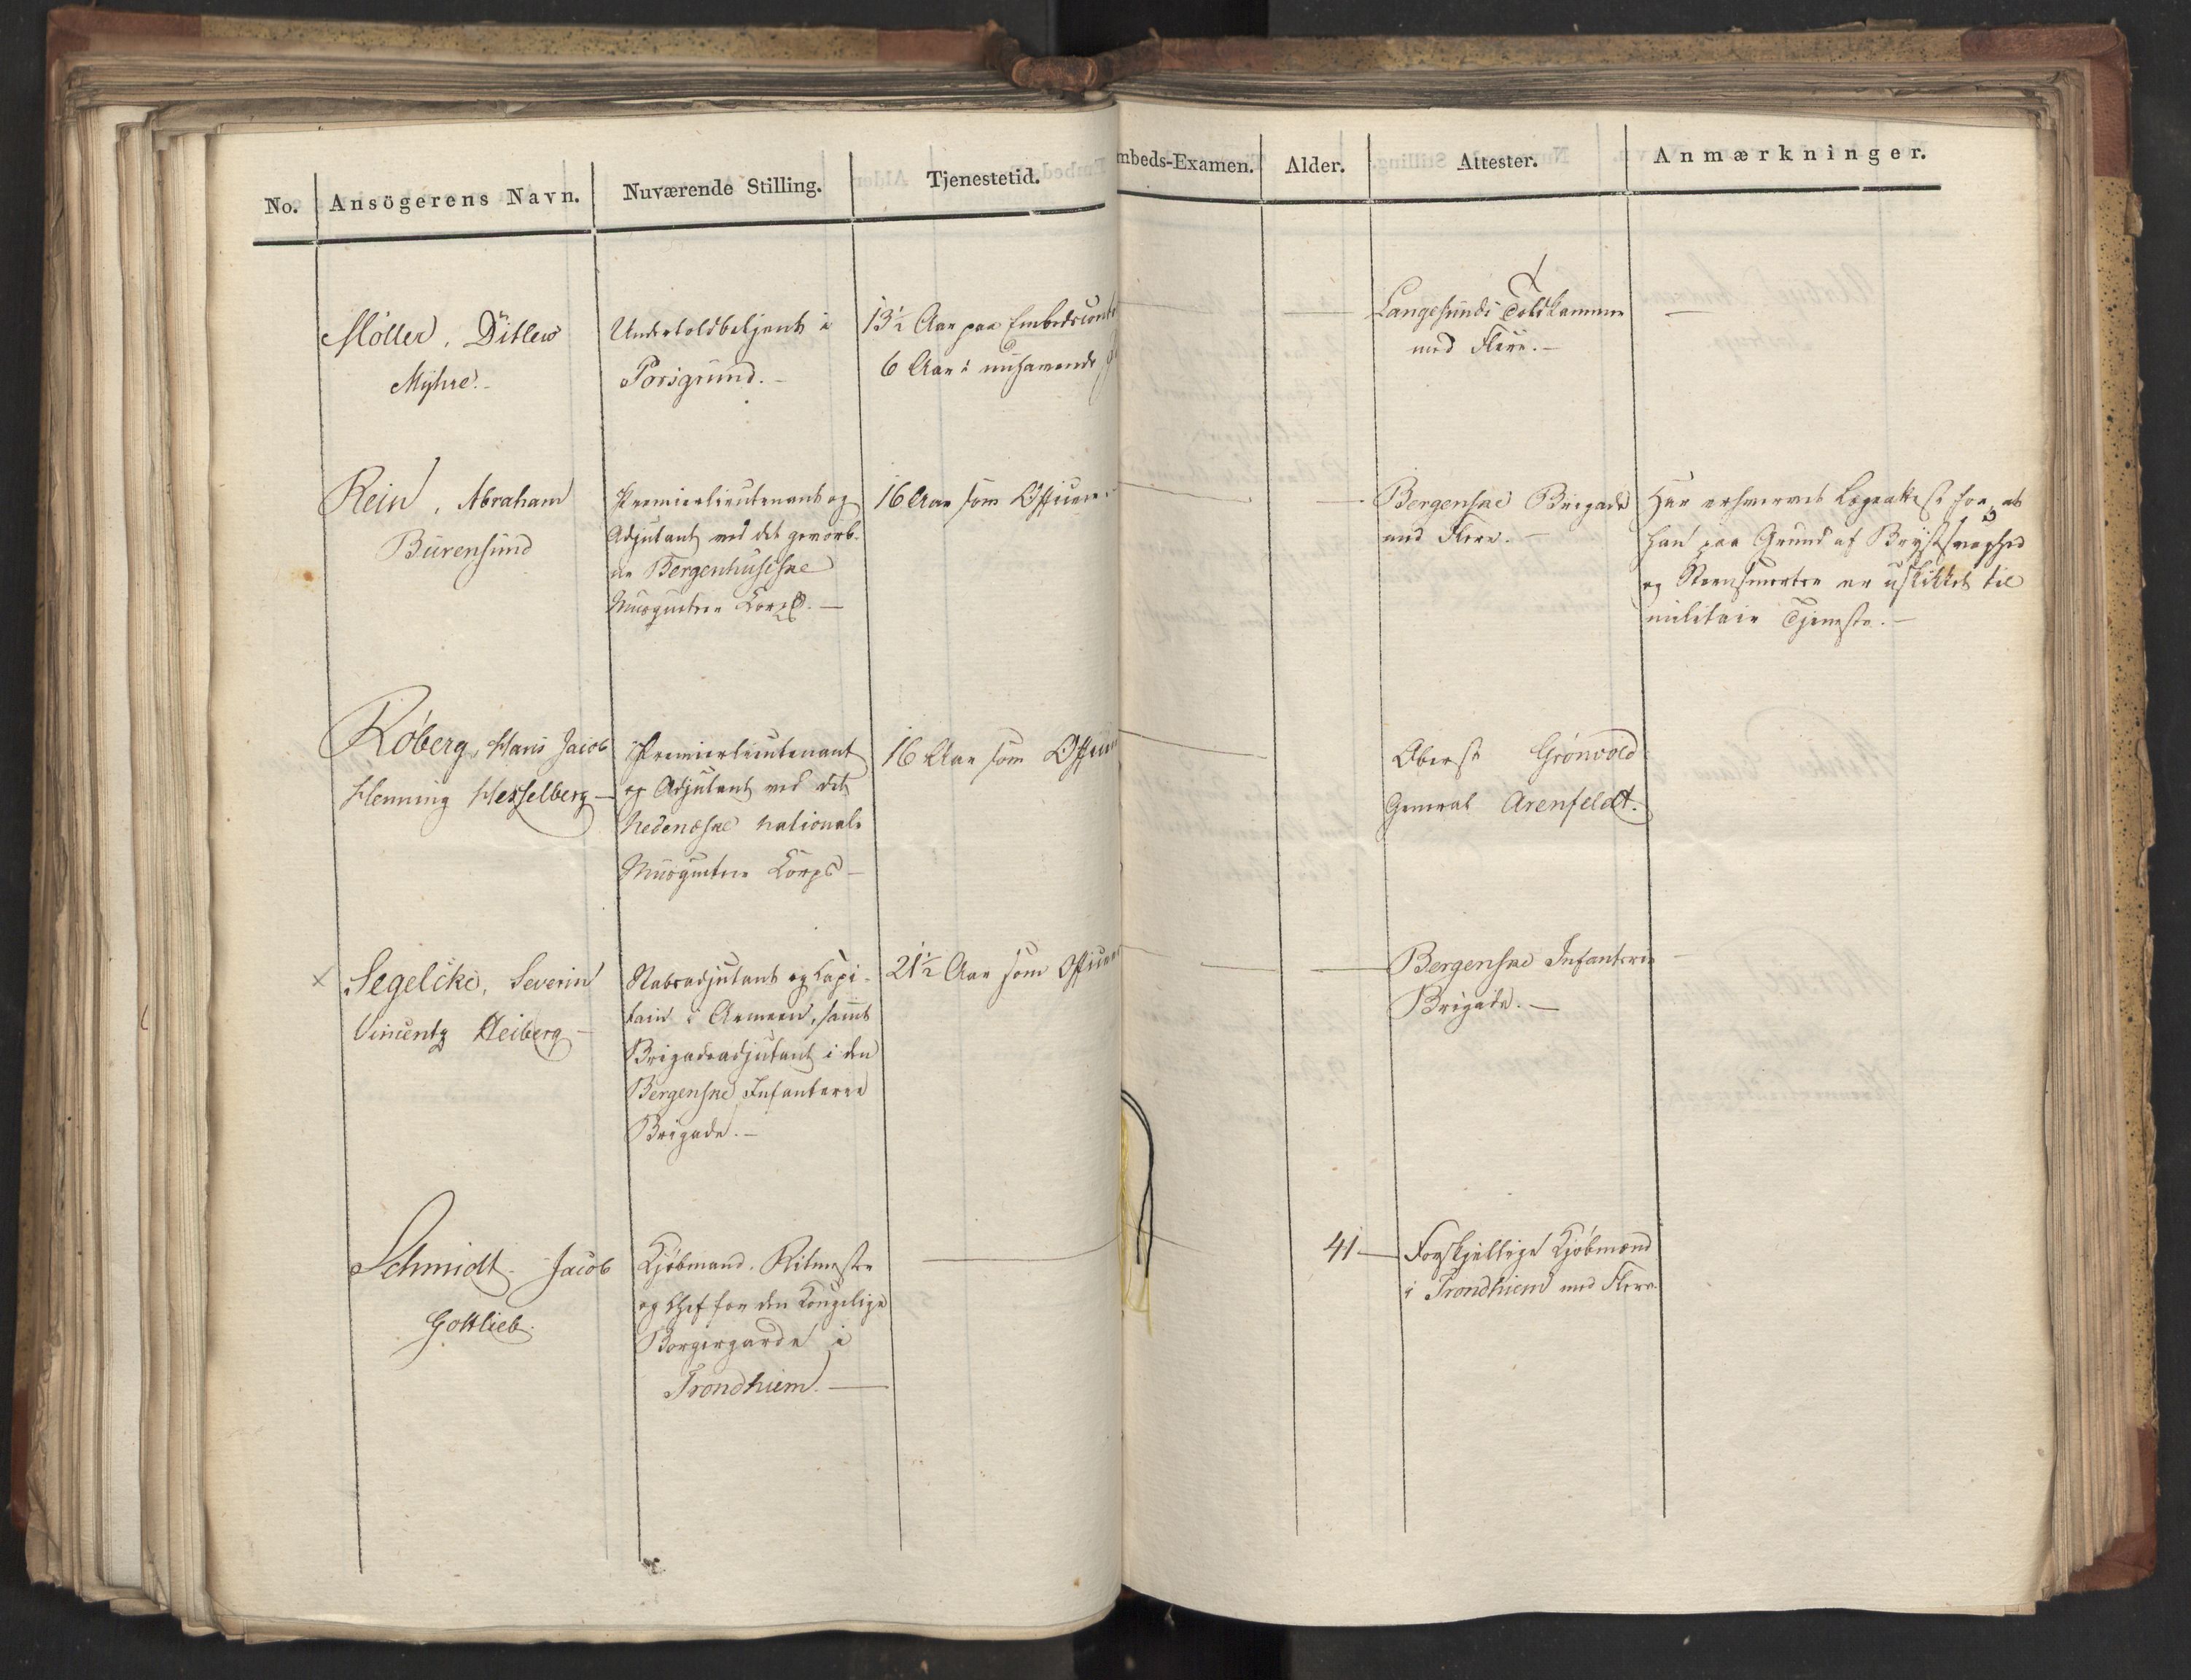 No. Ansögerens Navn. Nuværende Stilling. Tjenestetid. mbeds-Examen. Alder. Attester. Anmærkninger.
Møller, Ditlew
Myhre.-
Undertoldbetjent i
Porsgrund.-
13½ Aar paa Embedscont
6 Aar i nuhavende
Langesunds Toldkammer
med Flere.-
Rein, Abraham
Bürensund
Premierlieutenant og
Adjutant ved det gevorb-
ne Bergenhusiske
Musqueteer Corps.-
16 Aar som Officier
Bergenske Brigade
med Flere.-
Har erhvervet Lægeattest for, at
han paa Grund af Brystsvaghed
og Steensmerter er uskikket til
militair Tjeneste.-
Røberg, Hans Jacob
Henning Hesselberg-
Premierlieutenant
og Adjutant ved det
Nedenæske nationale
Musqueteer Corps-
16 Aar som Offici
Oberst Grønvold
General Arenfeldt.
x Segelcke, Severin
Vincentz Heiberg-
Stabsadjutant og Capi-
tain i Armeen, samt
Brigadeadjutant i den
Bergenske Infanterie
Brigade.-
21½ Aar som Officier
Bergenske Infanterie
Brigade.-
Schmidt. Jacob
Gottlieb.
Kjøbmand, Ritmester
og Chef for den Kongelige
Borgergarde i
Trondhiem.-
41-
Forskjellige Kjøbmænd
i Trondhiem med Flere.